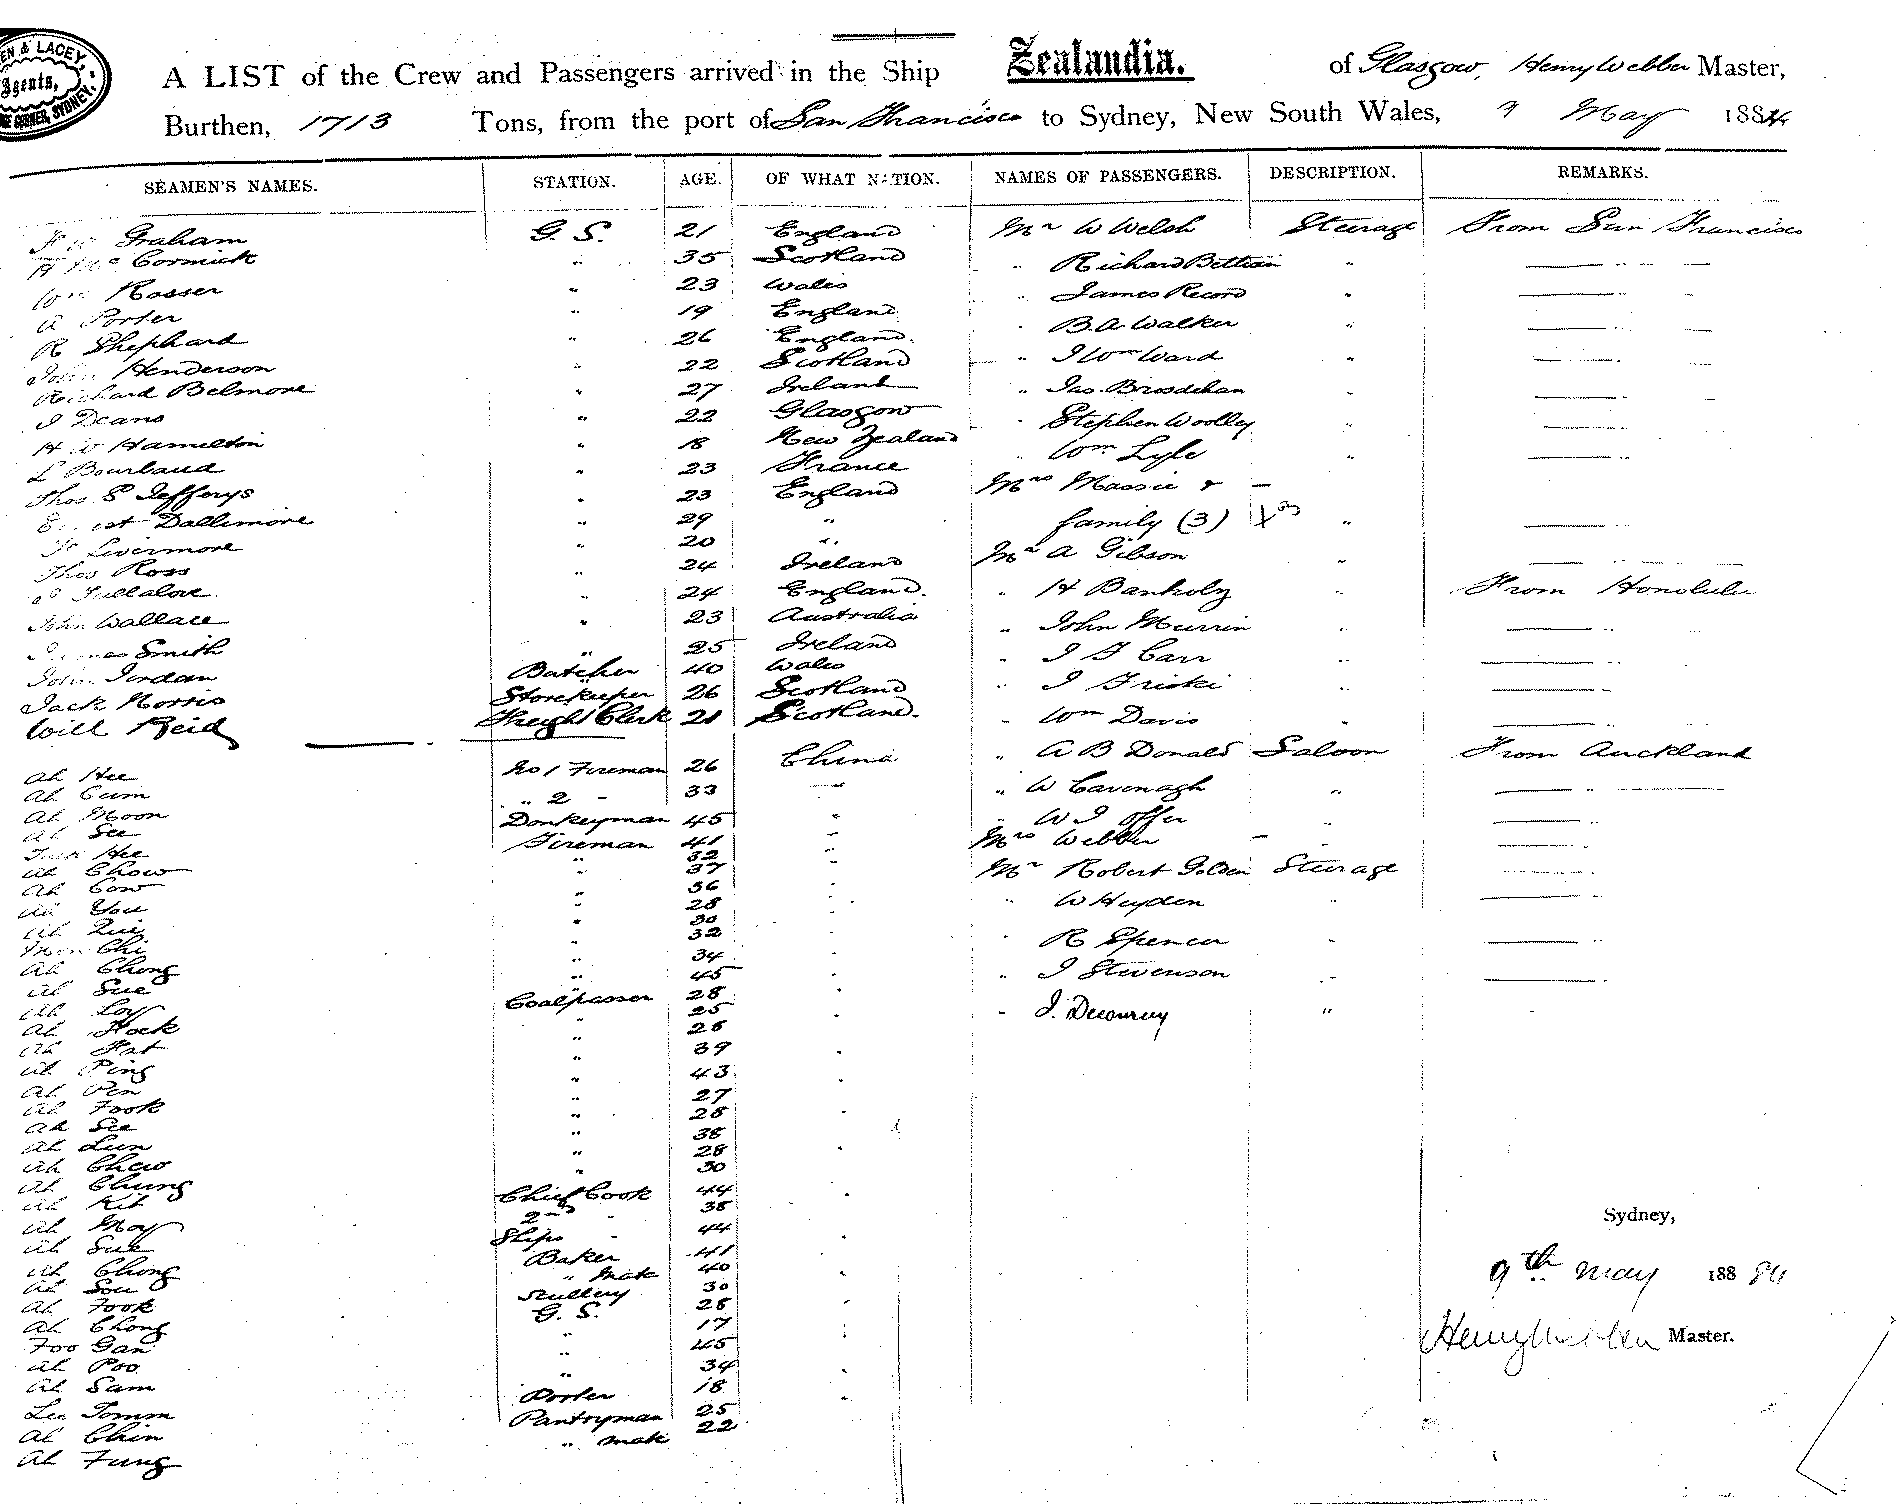 EN & LACEY,
Agents,
CORNER, SYDNEY.
A LIST of the Crew and Passengers arrived in the Ship Zealandia. of Glasgow, Henry Webber Master,
Burthen, 1713 Tons, from the port of San Francisco to Sydney, New South Wales, 9 May 1884
SEAMEN'S NAMES. STATION. AGE. OF WHAT NATION. NAMES OF PASSENGERS. DESCRIPTION. REMARKS.
Graham G. S. 21 England Mr W Welsh Steerage From San Francisco
H Mc Cormick " 35 Scotland " Richard " ——— "
Wm Rosser " 23 Wales " James Record " ——— "
A Porter " 19 England " B. A. Walker " ——— "
R Shephard " 26 England. " J Wm Ward " ——— "
John Henderson " 22 Scotland " Jas. "
Richard Belmore " 27 Ireland " Stephen Woolley " ——— "
J Deans " 22 Glasgow " Wm Lyle " ——— "
H W Hamilton " 18 New Zealand Mrs Massie & —
L Bourlaud " 23 France family (3) " ——— "
Thos P Jefferys " 23 England Mr A Gibson "
Dallimore " 29 " " H " From Honolulu
Livermore " 20 " " John Murrin " ——— "
Thos Ross " 24 Ireland " J F Carr " ——— "
Fullalove. " 24 England. " J Friski " ——— "
John Wallace " 23 Australia " Wm Davis " ——— "
James Smith " 25 Ireland " A B Donald Saloon From Auckland
John Jordan Butcher 40 Wales " W Cavenagh " ——— "
Jack Norris Storekeeper 26 Scotland " W J Offer " ——— "
Will Reid Freight Clerk 21 Scotland. Mrs Webber — " ——— "
Ah Hee No 1 Fireman 26 China Mr Robert Golden Steerage
Ah Cum " 2 " 33 " " W Hyden " ——— "
Ah Moon Donkeyman 45 " " R Spencer " ——— "
Ah See Fireman 41 " " J Stevenson " ——— "
Hee 32 " J. "
Ah Chow " 37
Ah Cow " 36
Ah You " 28
Ah 30
Mon Chi " 32
Ah Chong " 34
Ah Sue " 45
Ah Loy Coalpasser 28
Ah Hock " 25
Ah Fat " 28
Ah Ping " 39
Ah Pen " 43
Ah Fook " 27
Ah See " 28
Ah Lun " 38
Ah Chew " 28
Ah Chung " 30
Ah Kit Chief Cook 44
Ah May 2nd " 38
Ah Sue Ships " 44
Ah Chong Baker 41
Ah Sou " Mate 40
Ah Fook Scullery 30
Ah Chong G. S. 28
Foo Gan " 17
Ah Poo " 45
Ah Sam " 34
Lee Tomm Porter 18
Ah Chin Pantryman 25
Ah Fung " mate 22
Sydney,
9th May 188 84
Henry Webber Master.